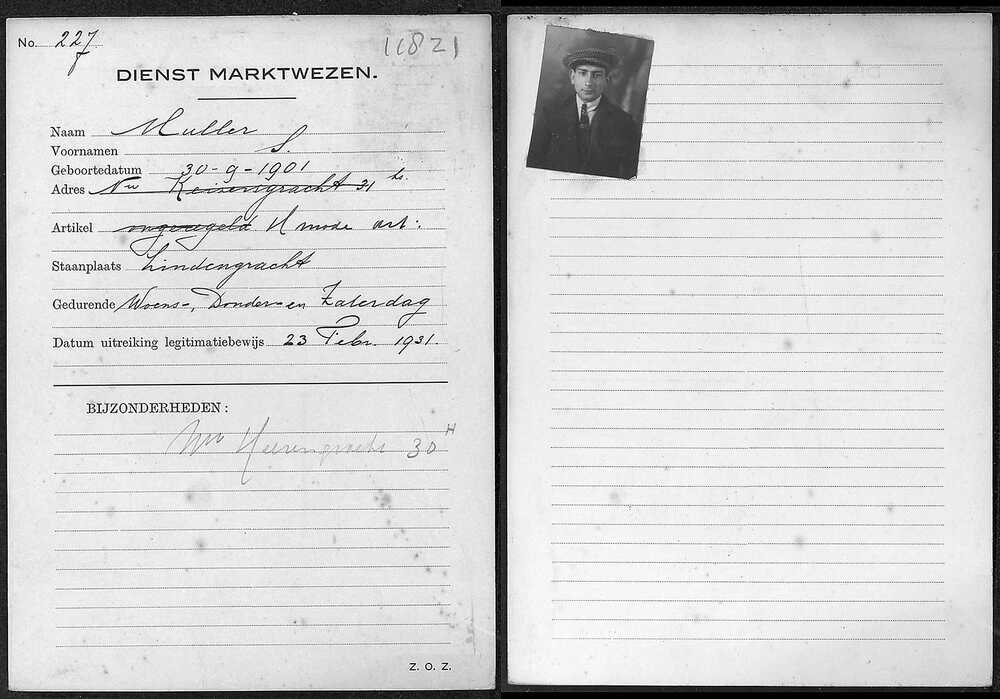 No. 227
11821
DIENST MARKTWEZEN.
Naam Muller
Voornamen S.
Geboortedatum 30-9-1901
Adres Nw Keizersgracht 31 hs.
Artikel ongeregeld H mode art:
Staanplaats Lindengracht
Gedurende Woens-, Donder- en Zaterdag
Datum uitreiking legitimatiebewijs 23 Febr. 1931.
BIJZONDERHEDEN:
Nw Heerengracht 30 H
Z. O. Z.